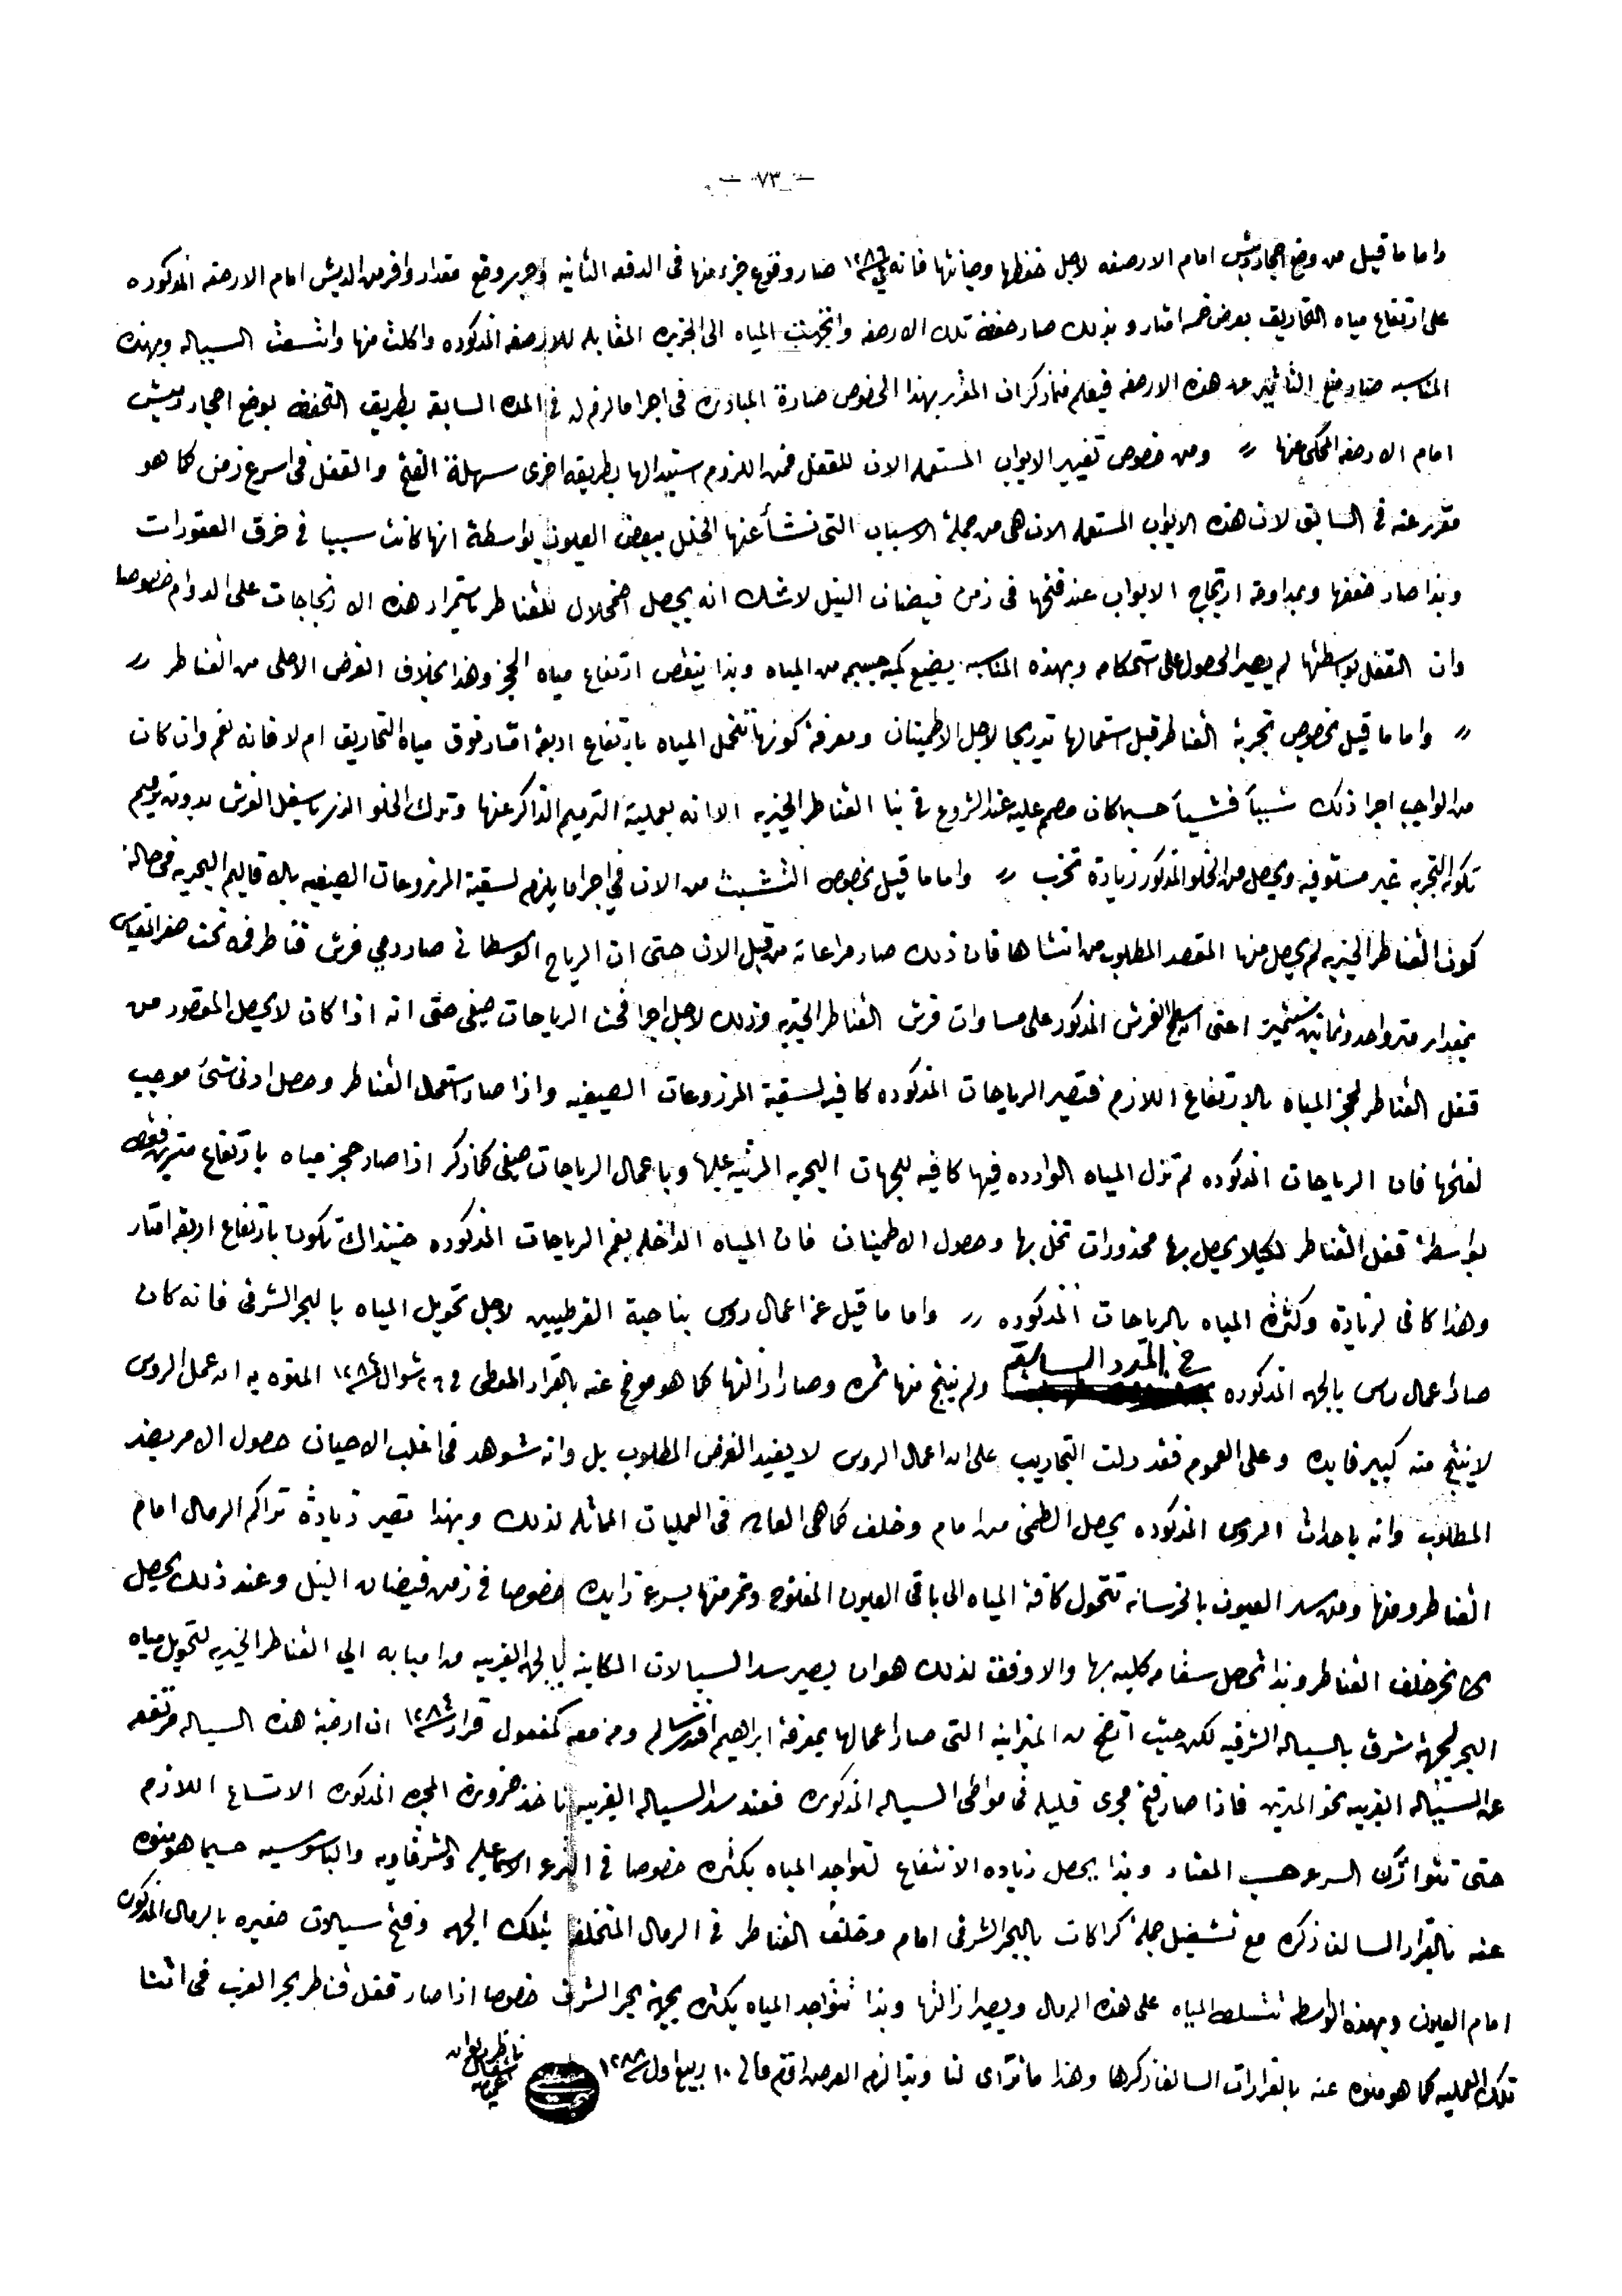 — ٧٣ —
واما ما قيل من وضع احجار دبش امام الارصفه لاجل حفظها وصيانتها فانه في سنة ١٢٨٦ صار وقوع جزء منها فى الدفعه الثانيه وجرى وضع مقدار وافر من الدبش امام الارصفه المذكوره
على ارتفاع مياه التحاريق بعرض خمسه امتار وبذلك صار حفظ تلك الارصفه وانجذبت المياه الى الجزيره المقابله للارصفه المذكوره واكلت منها واتسعت السياله وبهذه
المناسبه صار منع التأثير عن هذه الارصفه فيعلم مما ذكر ان المقرر بهذا الخصوص صارة المبادره فى اجرا ما لزم له فى المده السابقة بطريق التحفظ بوضع احجار دبش
امام الارصفه المحكى عنها // ومن خصوص تغيير الابواب المستعمله الان للقفل فمن اللزوم استبدالها بطريقه اخرى سهلة الفتح والقفل فى اسرع زمن كما هو
مقرر عنه فى السابق لان هذه الابواب المستعمله الان هى من جملة الاسباب التى نشأ عنها الخلل ببعض العيون بواسطة انها كانت سببا فى خرق العقورات
وبذا صار ضعفها وبمداومة ارتجاج الابواب عند فتحها فى زمن فيضان النيل لاشك انه يحصل اضمحلال للقناطر باستمرار هذه الارتجاجات على الدوام خصوصا
وان القفل بواسطتها لم يصير الحصول على استحكامه وبهذه المناسبه يضيع كميه جسيمه من المياه وبذا ينقص ارتفاع مياه الحجز وهذا بخلاف الغرض الاصلى من القناطر //
// واما ما قيل بخصوص تجربة القناطر قبل استعمالها تدريجا لاجل الاطمينان ومعرفة كونها تتحمل المياه بارتفاع اربعة امتار فوق مياه التحاريق ام لا فانه نعم وان كان
من الواجب اجرا ذلك شيأ فشيأ حسبما كان مصمم عليه عند الشروع فى بنا القناطر الخيريه الا انه بعملية الترميم الذاكر عنها وترك الخلو الذى باسفل الفرش بدون ترميم
تكون التجربه غير مستوفيه ويحصل من الخلو المذكور زيادة تخرب // واما ما قيل بخصوص التشبث من الان فى اجرا ما يلزم لسقية المزروعات الصيفيه بالاقاليم البحريه فى حالة
كون القناطر الخيريه لم يحصل منها المقصد المطلوب من انشاها فان ذلك صار مراعاته من قبل الان حتى ان الرياح الوسطانى صار رمي فرش قناطر فمه تحت صفر المقياس
بمقدار متر واحد وثمانين سنتيمتر اعنى ان سطح الفرش المذكور على مساوات فرش القناطر الخيريه وذلك لاجل اجرا فحت الرياحات صيفى حتى انه اذا كان لا يحصل المقصود من
قفل القناطر لحجز المياه بالارتفاع اللازم فتصير الرياحات المذكوره كافيه لسقية المزروعات الصيفيه واذا صار استعمال القناطر وحصل ادنى شئ موجب
لفتحها فان الرياحات المذكوره لم تزل المياه الوارده فيها كافيه للجهات البحريه المرتبه عليها وباعمال الرياحات صيفى كما ذكر اذا صار حجز مياه بارتفاع مترين فقط
بواسطة قفل القناطر لكيلا يحصل بها محذورات تخل بها وحصول الاطمينان فان المياه الداخله بفم الرياحات المذكوره حينئذاك تكون بارتفاع اربعه امتار
وهذا كافى لزيادة وكثرة المياه بالرياحات المذكوره // واما ما قيل عن اعمال روس بناحية القرطيين لاجل تحويل المياه بالبحر الشرقى فانه كان
فى المدد السابقه
صار اعمال رس بالجهه المذكوره ولم ينتج منها ثمره وصار ازالتها كما هو موضح عنه بالقرار المعطى فى ٢٦ شوال سنة المنوه به ان عمل الروس
لا ينتج منه كبير فايده وعلى العموم فقد دلت التجاريب على ان اعمال الروس لا يفيد الغرض المطلوب بل وانه شوهد فى اغلب الاحيان حصول الامر بضد
المطلوب وانه باحداث الروس المذكوره يحصل الطمى من امام وخلف كما هى العاده فى العمليات المماثله لذلك وبهذا تصير زيادة تراكم الرمال امام
القناطر ومنها ومن سد العيون بالخرسانه تتحول كافة المياه الى باقى العيون المفتوح وتمر منها بسرعة زايده خصوصا فى زمن فيضان النيل وعند ذلك يحصل
نحر خلف القناطر وبذا تحصل كليه بها والاوفق لذلك هو ان يصير سد السيالات الكاينه بالجهه الغربيه من امبابه الي القناطر الخيريه لتحويل مياه
البحر لجهة شرق بالسياله الشرقيه لكن حيث اتضح من الميزانيه التى صار اعمالها بمعرفة ابراهيم افندى سالم ومن معه كمفعول قرار سنة ١٢٨٤ ان ارضية هذه السياله مرتفعه
عن السياله الغربيه نحو المترين فاذا صار فتح مجرى قليله فى مواطى السياله المذكوره فعند سد السياله الغربيه تاخذ ضرورة المجره المذكوره الاتساع اللازم
حتى تتوازن السرع حسب المعتاد وبذا يحصل زياده الانتفاع لتواجد المياه بكثره خصوصا فى الترع الاسماعيلي والشرقاويه والباسوسيه حسبما هو منوه
عنه بالقرار السالف ذكره مع تشغيل جملة كراكات بالبحر الشرقى امام وخلف القناطر فى الرمال المتخلف بتلك الجهه وفتح سيالات صغيره بالرمال المذكوره
امام العيون وبهذه الواسطه تتسلط المياه على هذه الرمال ويصير ازالتها وبذا تتواجد المياه بكثره بجهة بحر الشرق خصوصا اذا صار قفل قناطر بحر الغرب فى اثنا
تلك العمليه كما هو منوه عنه بالقرارات السالف ذكرها وهذا ما تراى لنا وبذا لزم العرض افندم فى ١٠ ربيع اول سنة ١٢٨٨
ناظر ديوان
اشغال
عموميه
بهجت